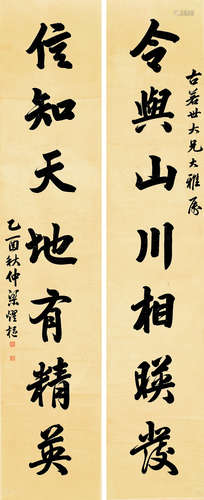 古若世大兄大雅属
令與山川相暎發
信知天地有精英
乙酉秋仲梁燿枢